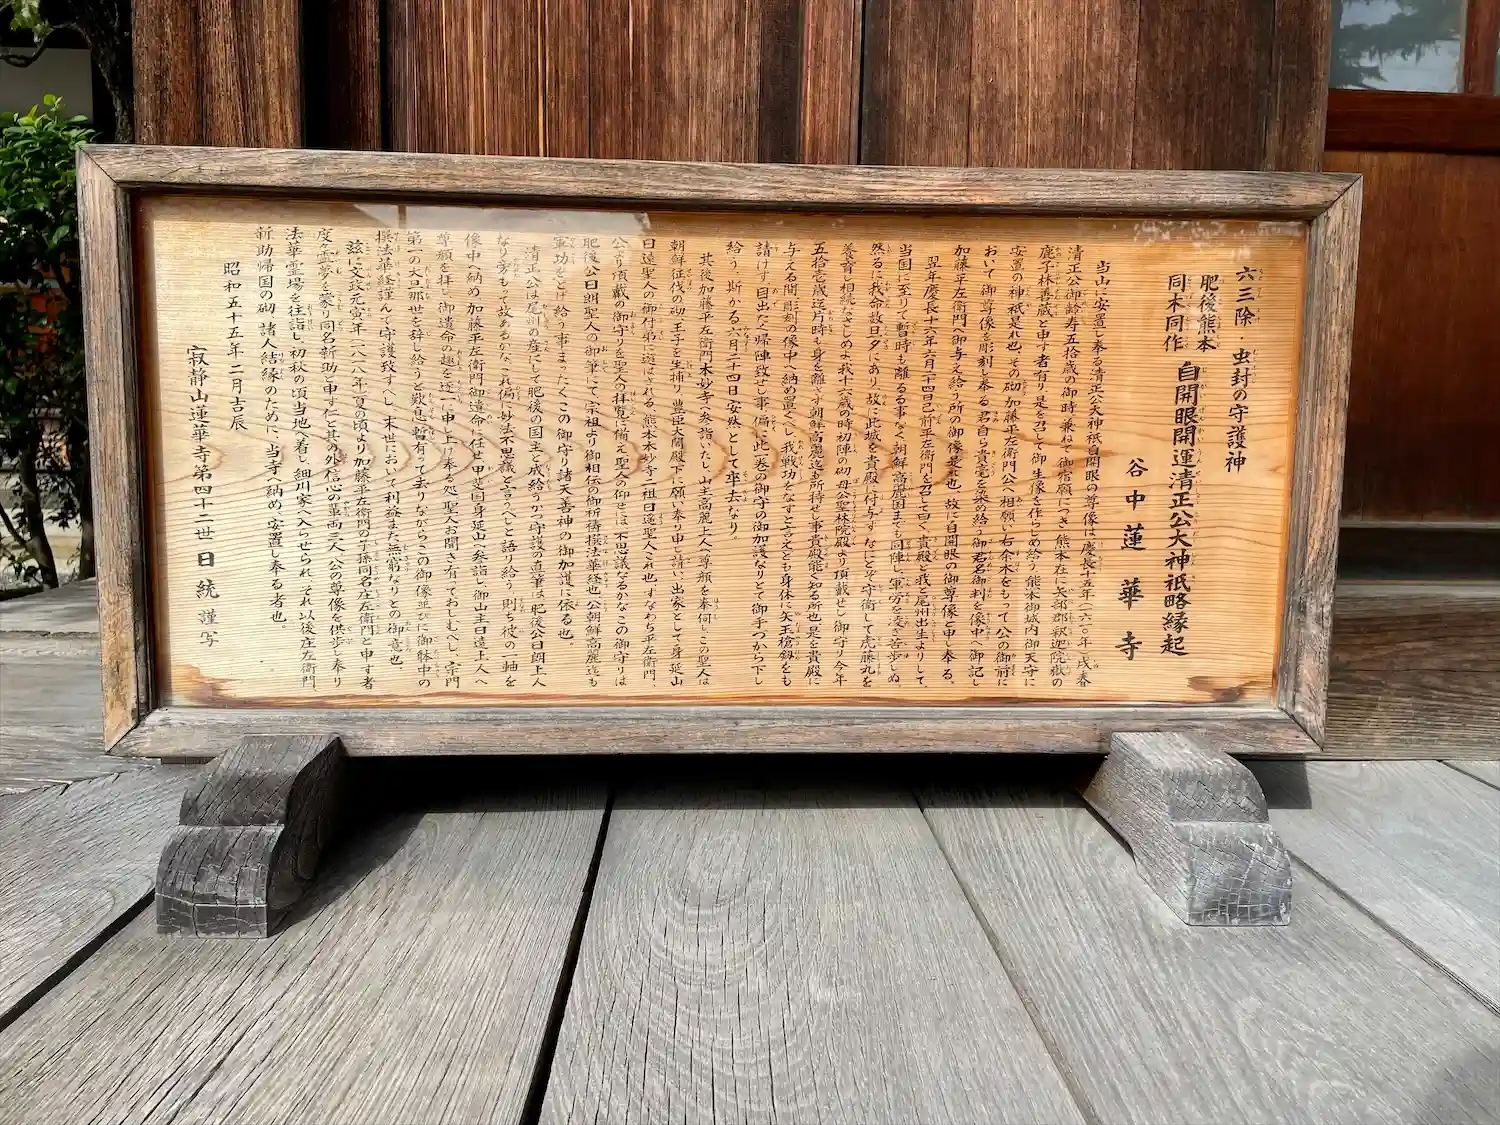 六三除・虫封の守護神
肥後熊本
同木同作
自開眼開運清正公大神祇略縁起
谷中 蓮華寺
当山に安置し奉る清正公大神祇自開眼の尊像は、慶長十五年(一六一〇年)戌春
清正公御齢寿五拾歳の御時、兼ねて御宿願につき、熊本在に矢部郡釈迦院嶽の
鹿子林善蔵と申す者有り、是を召して御生像を作らしめ給う。熊本御城内御天守に
安置の神祇是れ也、その砌加藤平左衛門、公へ相願い右余木をもって公の御前に
おいて御尊像を彫刻し奉る。君自ら貴毫を染め給い御君名御判を像中へ御記し
加藤平左衛門へ御与え給う所の御像是れ也、故に自開眼の御尊像と申し奉る。
翌年、慶長十六年六月二十四日己前平左衛門を召して曰く、貴殿と我と尾州出生よりして、
当国に至りて暫時も離るる事なく、朝鮮高麗国までも同陣し、軍労を凌ぎ苦歩しぬ、
然るに我命数旦夕にあり、故に此城を貴殿に付与す、なにとぞ守衛して虎藤丸を
養育し相続なさしめよ、我十八歳の時初陣の砌、母公聖林院殿より頂載せし御守り、今年
五拾壱歳迄片時も身を離さず、朝鮮高麗迄も所持せし事貴殿能く知る所也、是を貴殿に
与える間、彫刻の像中へ納め置くべし、我戦功をなすと言えども身体に矢玉槍剱をも
請けず、目出たく帰陣致せし事、偏に此一巻の御守の御加護なりとて御手つから下し
給う、斯かる六月二十四日安然として卒去なり
其後加藤平左衛門本妙寺へ参詣いたし、山主高麗上人へ尊顔を奉伺し、この聖人は
朝鮮征伐の砌、王子を生捕り、豊臣大閤殿下に願い奉り申し請い、出家として身延山
日遠聖人の御付弟に遊ばされる、熊本本妙寺二祖日遙聖人これ也、すなわち平左衛門、
公より頂載の御守りを聖人の拝覧に備え、聖人の仰せには不思議なるかなこの御守りは
肥後公日朗聖人の御筆にて、宗祖より御相伝の御祈祷撰法華経也、公朝鮮高麗迄も
軍功をとげ給う事まったくこの御守り諸天善神の御加護に依る也。
清正公は尾州の産にして肥後の国主と成り給う、かつ守護の直筆は肥後公日朗上人
なり、旁もって故あるかな、これ偏に妙法不思議と言うべしと語り給う、則ち彼の一軸を
像中へ納め、加藤平左衛門御遺命に任せ、甲斐国身延山へ参詣し、御山主日遠上人へ
尊顔を拝し、御遺命の趣を逐一申し上げ奉る処、聖人お聞き有っておしむべし、宗門
第一の大旦那世を辞し給うと歎息暫有って去りながらこの御像並びに御躰中の
撰法華経謹んで守護致すべし、末世において利益また無窮なりとの御意也
茲に文政元寅年(一八一八年)夏の頃より加藤平左衛門の子孫同名庄左衛門と申す者
度々霊夢を蒙り、同名新助と申す仁と其の外信心の輩両三人、公の尊像を供歩し奉り
法華霊場を往詣し、初秋の頃当地へ着し、細川家へ入らせられ、それ以後庄左衛門、
新助帰国の砌、諸人結縁のために、当寺へ納め、安置し奉る者也
昭和五十五年二月吉辰
寂静山蓮華寺第四十二世 日統 謹写